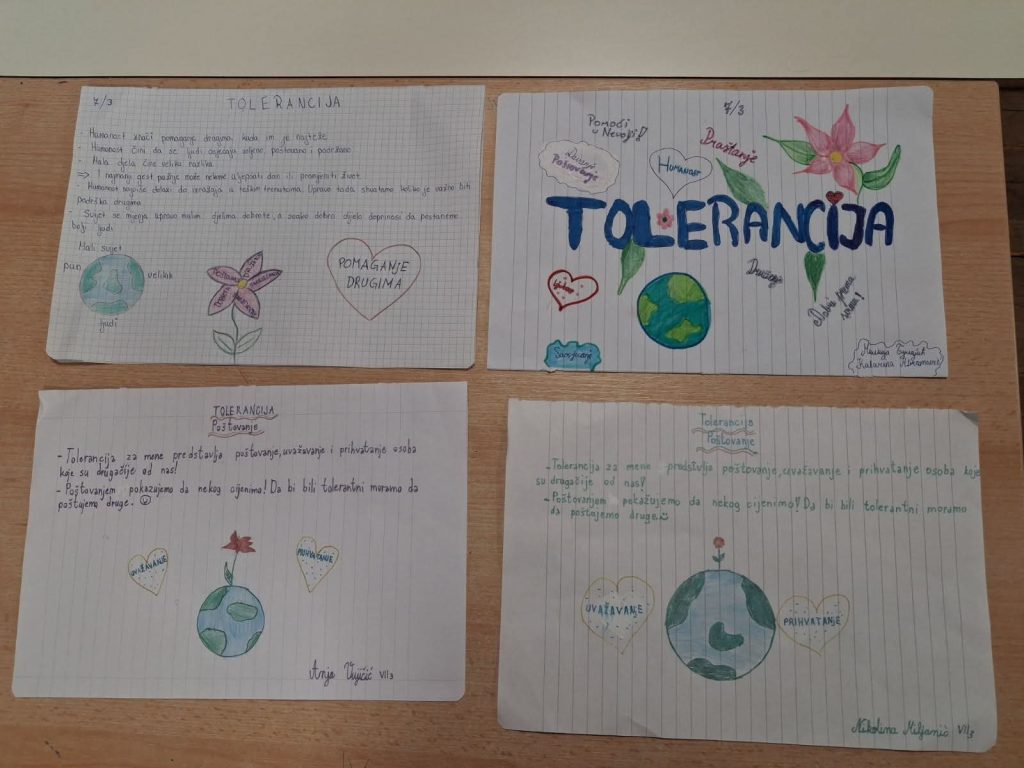 7/3
TOLERANCIJA
- Humanost znači pomaganje drugima, kada im je najteže
- Humanost čini, da se ljudi osjećaju voljeno, poštovano i podržano.
- Mala djela čine velika razlika
=> I najmanji gest pažnje može nekome uljepšati dan ili promijeniti život.
- Humanost najviše dolazi do izražaja u teškim trenutcima. Upravo tada shvatamo koliko je važno biti
podrška drugima
- Svijet se mijenja upravo malim djelima dobrote, a svako dobro djelo doprinosi da postanemo
bolji ljudi
Mali svijet
pun
velikih
ljudi
POMAGANJE
DRUGIMA
7/3
Pomoći
u Nevolji!
Poštovanje
HUMANOST
Praštanje
TOLERANCIJA
Druženje
Dobri prema
svima!
Saosjećanje
Katarina
TOLERANCIJA
Poštovanje
- Tolerancija za mene predstavlja poštovanje, uvažavanje i prihvatanje osoba
koje su drugačije od nas!
- Poštovanjem pokazujemo da nekog cijenimo! Da bi bili tolerantni moramo da
poštujemo druge. ☺
UVAŽAVANJE
PRIHVATANJE
Anja Vujičić VII3
Tolerancija
Poštovanje
- Tolerancija za mene predstvlja poštovanje, uvažavanje i prihvatanje osoba koje
su drugačije od nas!
- Poštovanjem pokažujemo da nekog cijenimo! Da bi bili tolerantni moramo
da poštujemo druge.
UVAŽAVANJE
PRIHVATANJE
Nikolina Miljanić VII3